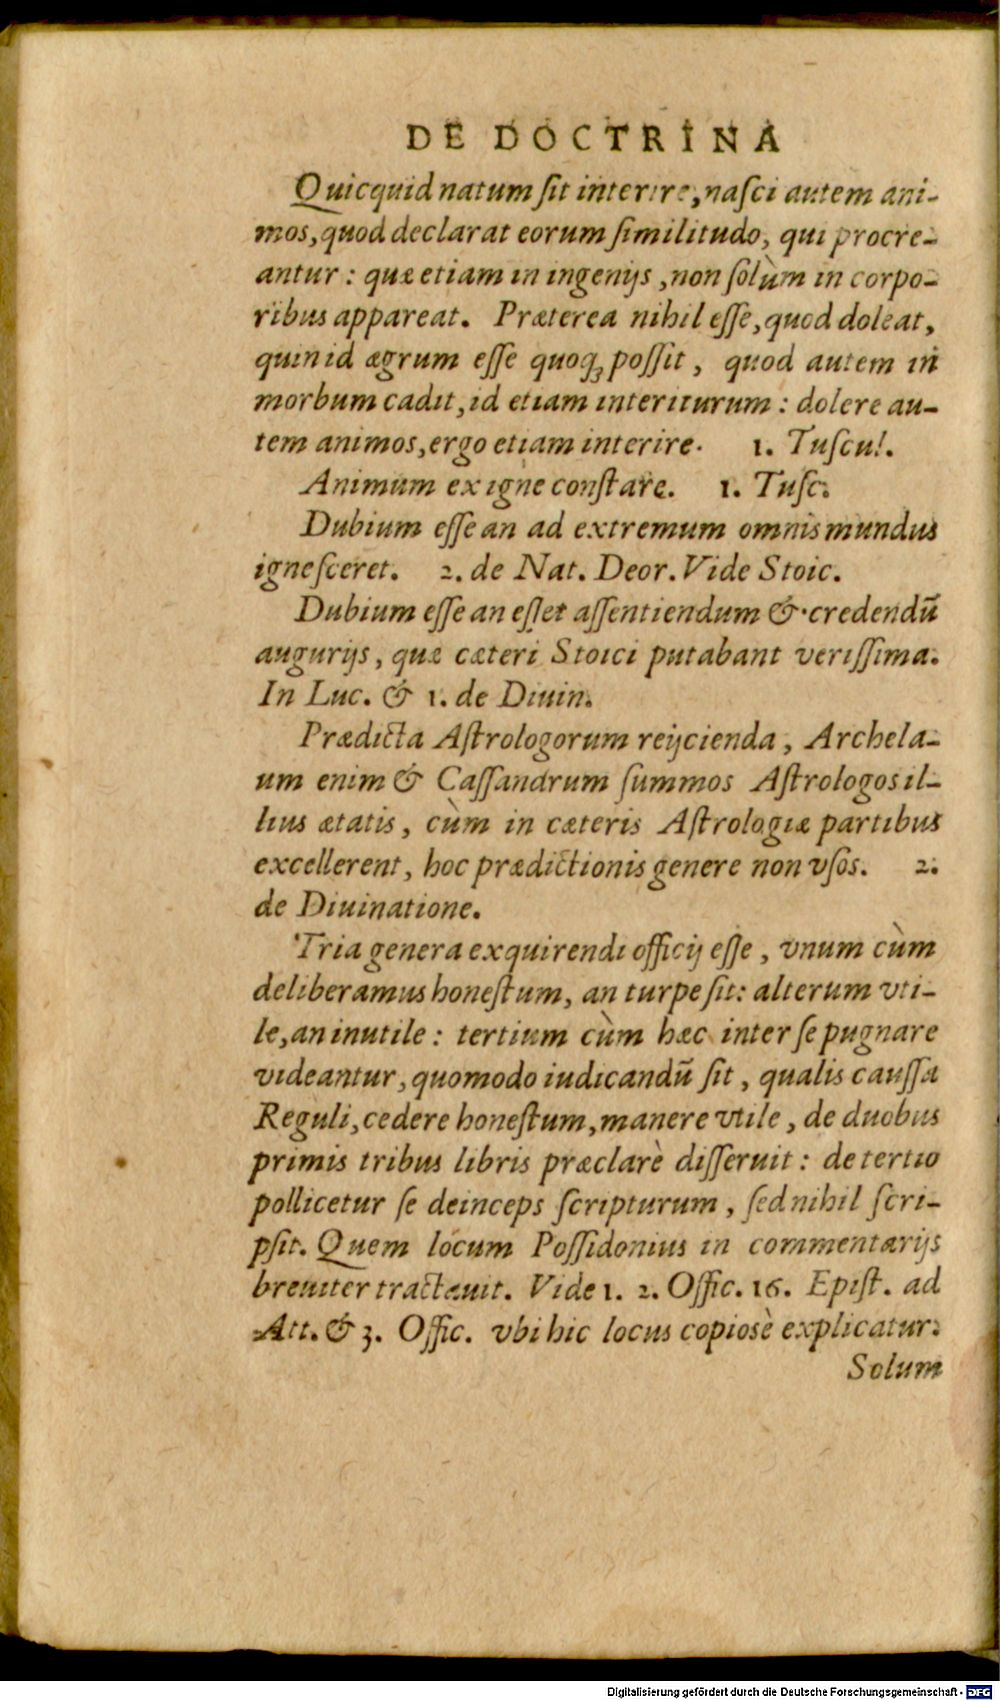 DE DOCTRINA
Quicquid natum ſit interire, naſci autem ani-
mos, quod declarat eorum ſimilitudo, qui procre-
antur: quæ etiam in ingenijs, non ſolùm in corpo-
ribus appareat. Præterea nihil eſſe, quod doleat,
quin id ægrum eſſe quoqꝫ poſſit, quod autem in
morbum cadit, id etiam interiturum: dolere au-
tem animos, ergo etiam interire. 1. Tuſcul.
Animum ex igne conſtare. 1. Tuſc.
Dubium eſſe an ad extremum omnis mundus
igneſceret. 2. de Nat. Deor. Vide Stoic.
Dubium eſſe an eſſet aſſentiendum & credendū
augurijs, quæ cæteri Stoici putabant veriſſima.
In Luc. & 1. de Diuin.
Prædicta Aſtrologorum reijcienda, Archela-
um enim & Caſſandrum ſummos Aſtrologos il-
lius ætatis, cùm in cæteris Aſtrologiæ partibus
excellerent, hoc prædictionis genere non vſos. 2.
de Diuinatione.
Tria genera exquirendi officij eſſe, vnum cùm
deliberamus honeſtum, an turpe ſit: alterum vti-
le, an inutile: tertium cùm hæc inter ſe pugnare
videantur, quomodo iudicandū ſit, qualis cauſſa
Reguli, cedere honeſtum, manere vtile, de duobus
primis tribus libris præclarè diſſeruit: de tertio
pollicetur ſe deinceps ſcripturum, ſed nihil ſcri-
pſit. Quem locum Poſſidonius in commentarijs
breuiter tractauit. Vide 1. 2. Offic. 16. Epiſt. ad
Att. & 3. Offic. vbi hic locus copiosè explicatur.
Solum
Digitalisierung gefördert durch die Deutsche Forschungsgemeinschaft - DFG